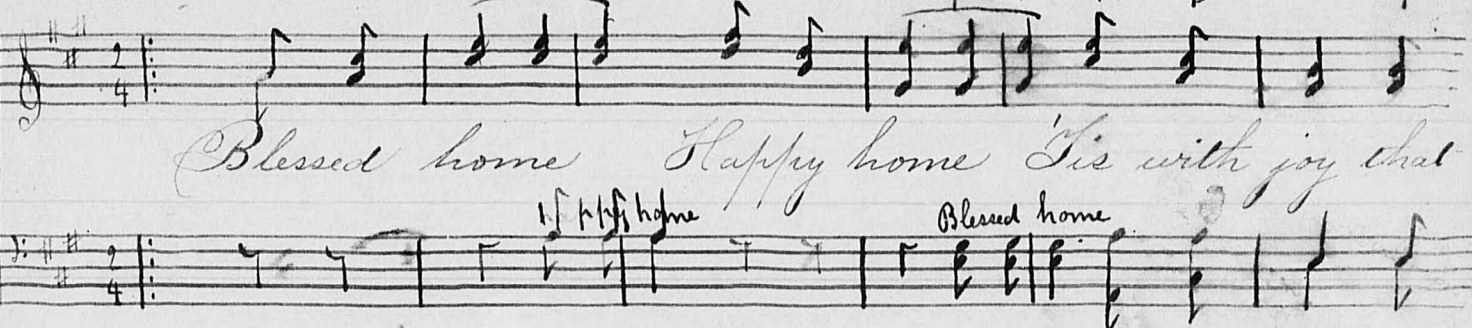 2
4
Blessed home Happy home 'Tis with joy that
Happy home Blessed home
2
4